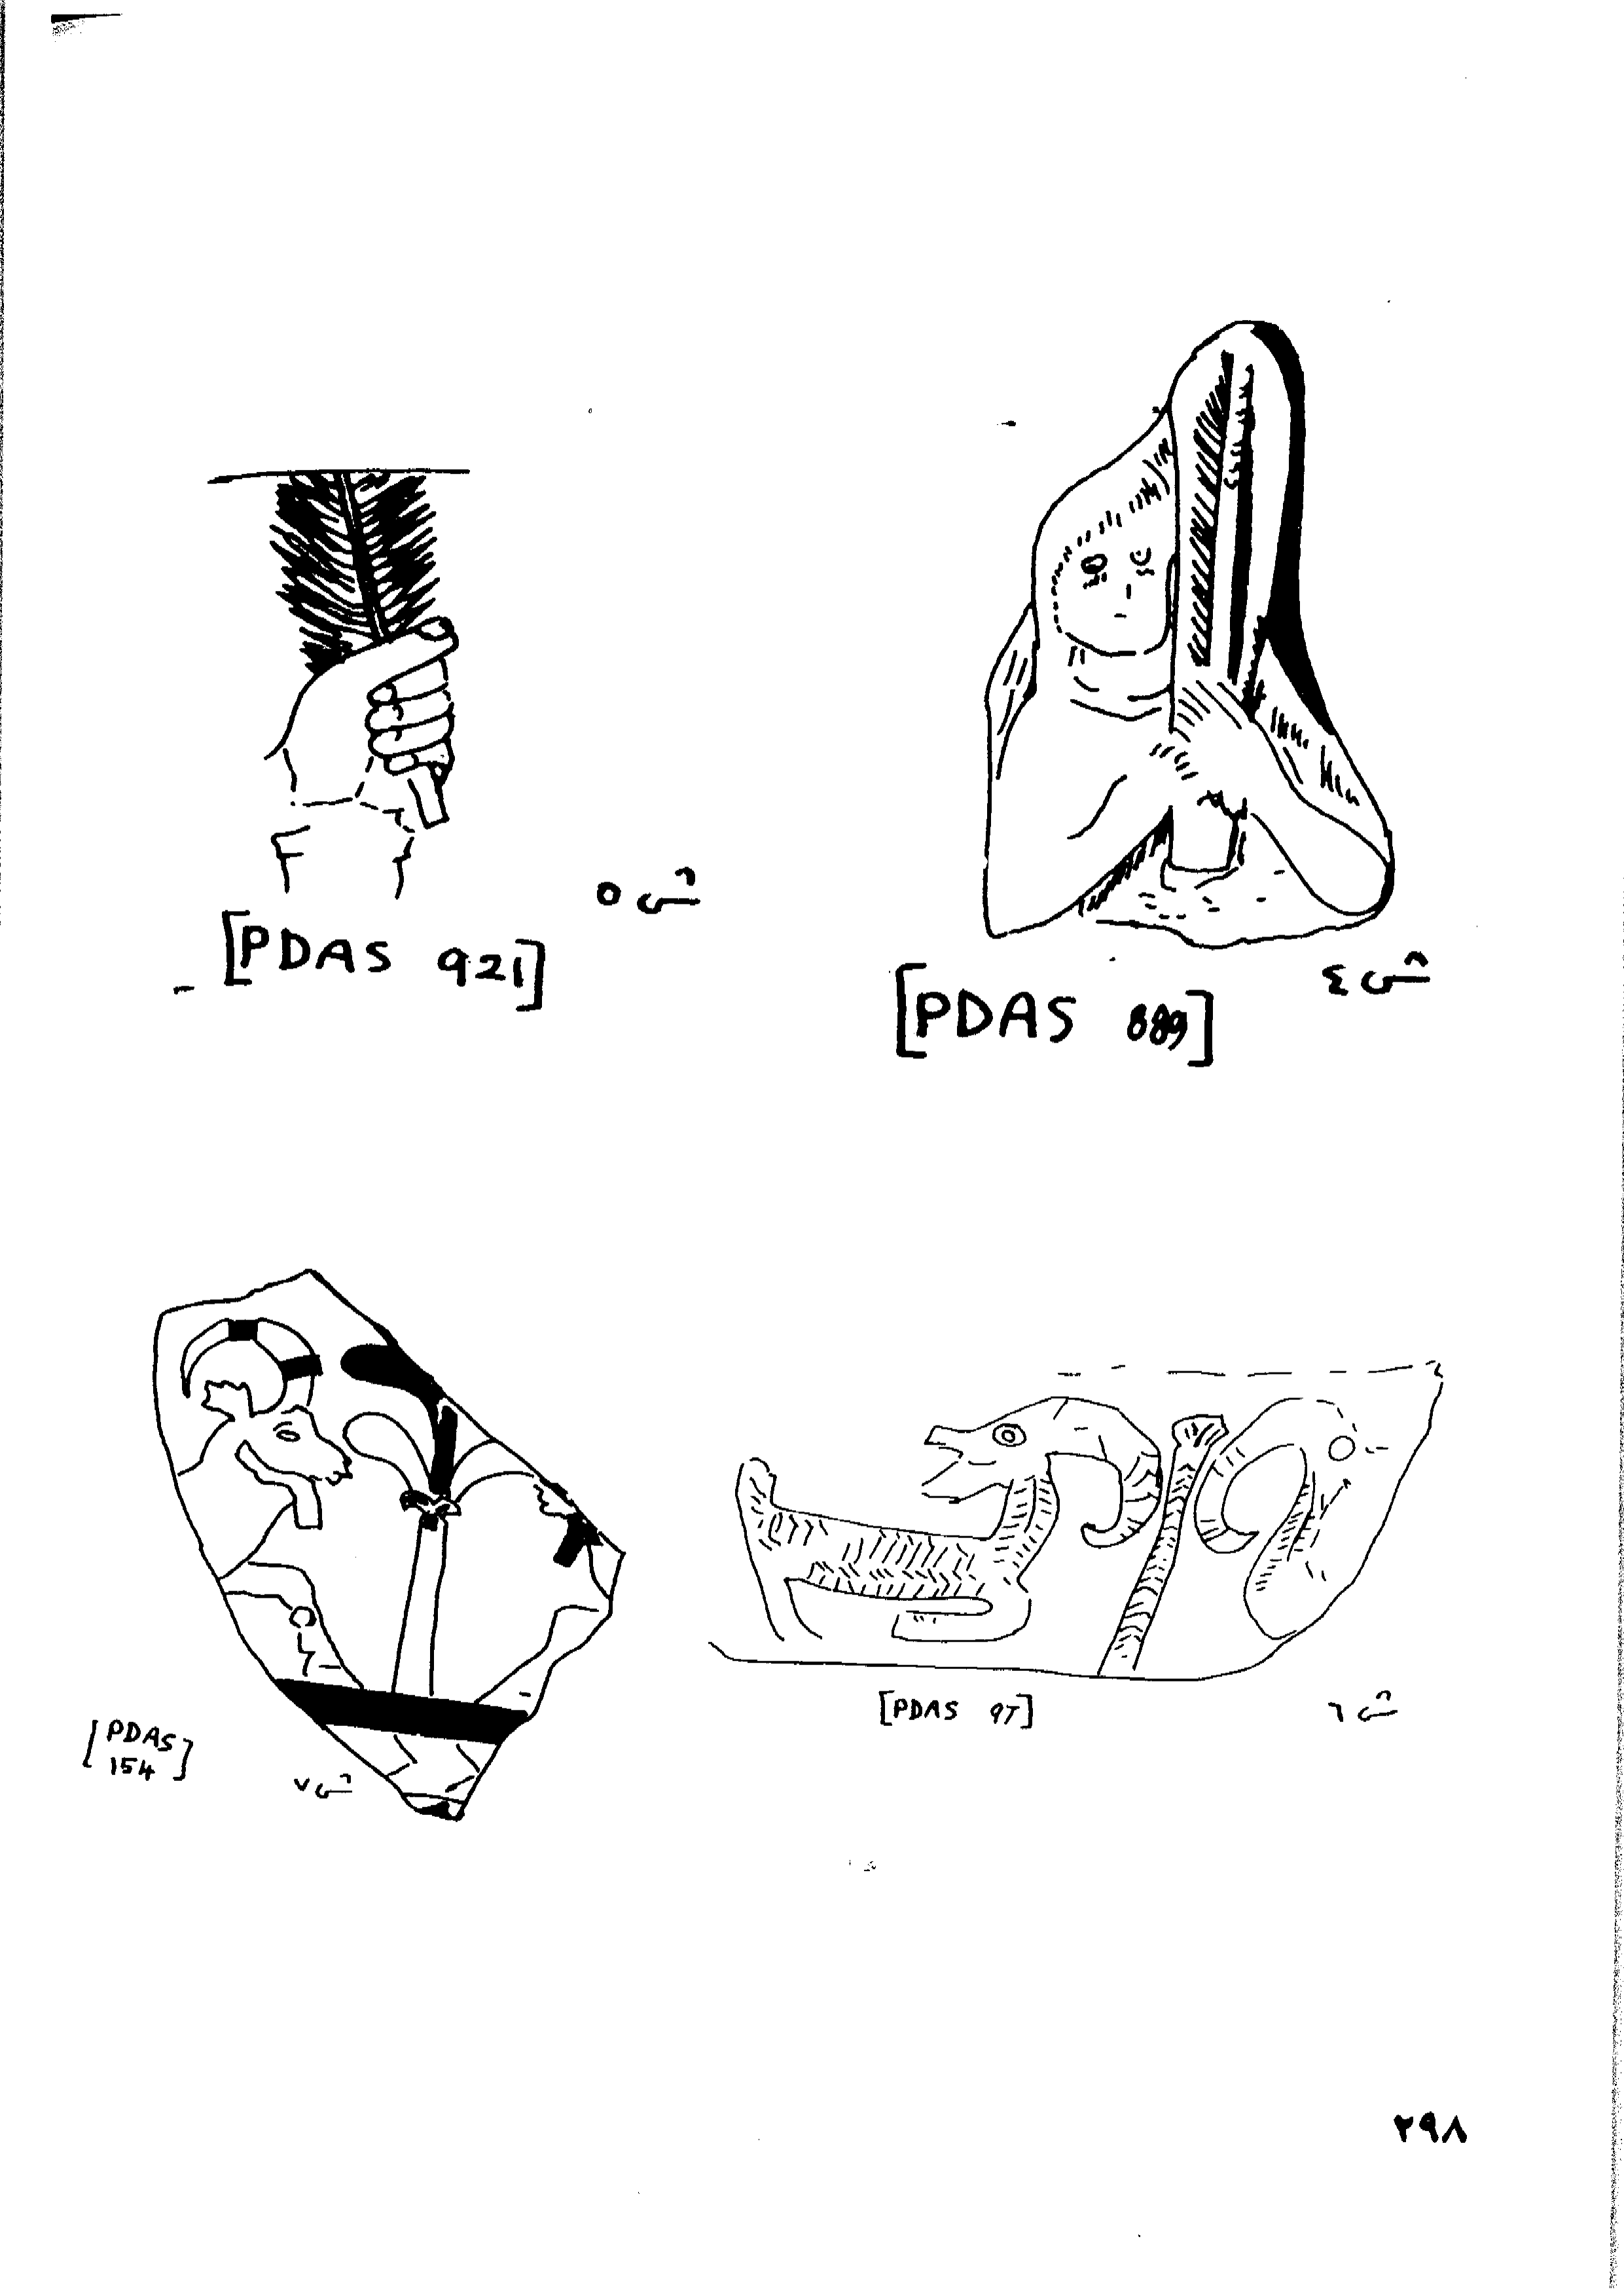 ش ٤
[PDAS 889]
ش ٥
[PDAS 921]
ش ٦
[PDAS 97]
ش ٧
[PDAS
154]
٢٩٨